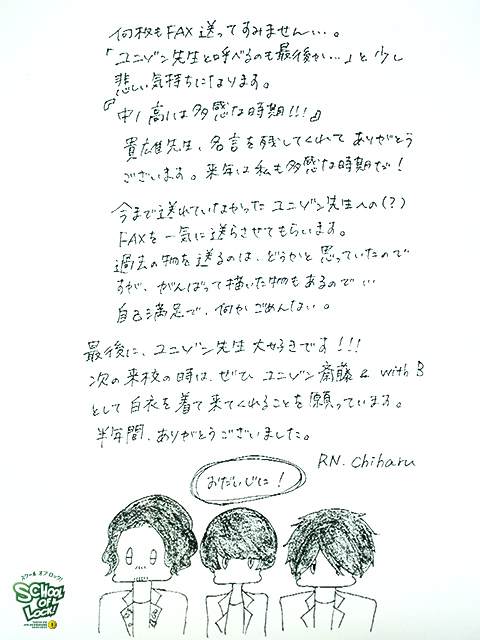 何枚もFAX送ってすみません…。
「ユニゾン先生と呼べるのも最後か…」と少し
悲しい気持ちになります。
『中1高1は多感な時期!!!』
貴雄先生、名言を残してくれて ありがとう
ございます。来年は私も多感な時期だ!
今まで送れていなかった ユニゾン先生への(?)
FAXを一気に送らさせてもらいます。
過去の物を送るのは、どうかと思っていたので
すが、がんばって描いた物もあるので…
自己満足で、何かごめんなさい。
最後に、ユニゾン先生大好きです!!!
次の来校の時は、ぜひ ユニゾン斎藤 & with B
として白衣を着て来てくれることを願っています。
半年間、ありがとうございました。
RN. chiharu
おだいじに!
スクール オブ ロック!
SCHOOL OF LOCK!